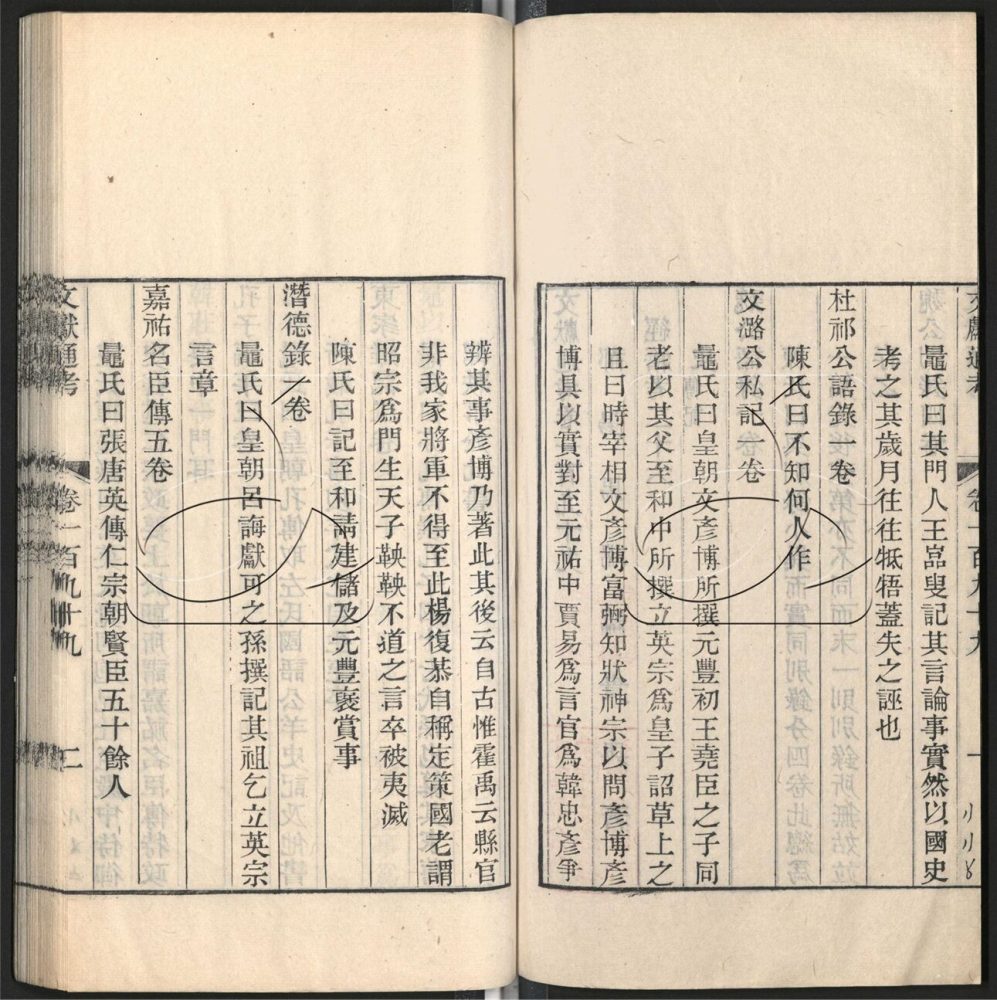 文獻通考 卷一百九十九 一
鼂氏曰其門人王嵓叟記其言論事實然以國史
考之其歲月往往牴牾蓋失之誣也
杜祁公語錄一卷
陳氏曰不知何人作
文潞公私記一卷
鼂氏曰皇朝文彥博所撰元豐初王堯臣之子同
老以其父至和中所撰立英宗爲皇子詔草上之
且曰時宰相文彥博富弼知狀神宗以問彥博彥
博具以實對至元祐中賈易爲言官爲韓忠彥爭
辨其事彥博乃著此其後云自古惟霍禹云縣官
非我家將軍不得至此楊復恭自稱定策國老謂
昭宗爲門生天子鞅鞅不道之言卒被夷滅
陳氏曰記至和請建儲及元豐襃賞事
潛德錄一卷
鼂氏曰皇朝呂誨獻可之孫撰記其祖乞立英宗
言章
嘉祐名臣傳五卷
鼂氏曰張唐英傳仁宗朝賢臣五十餘人
文獻通考 卷一百九十九 二